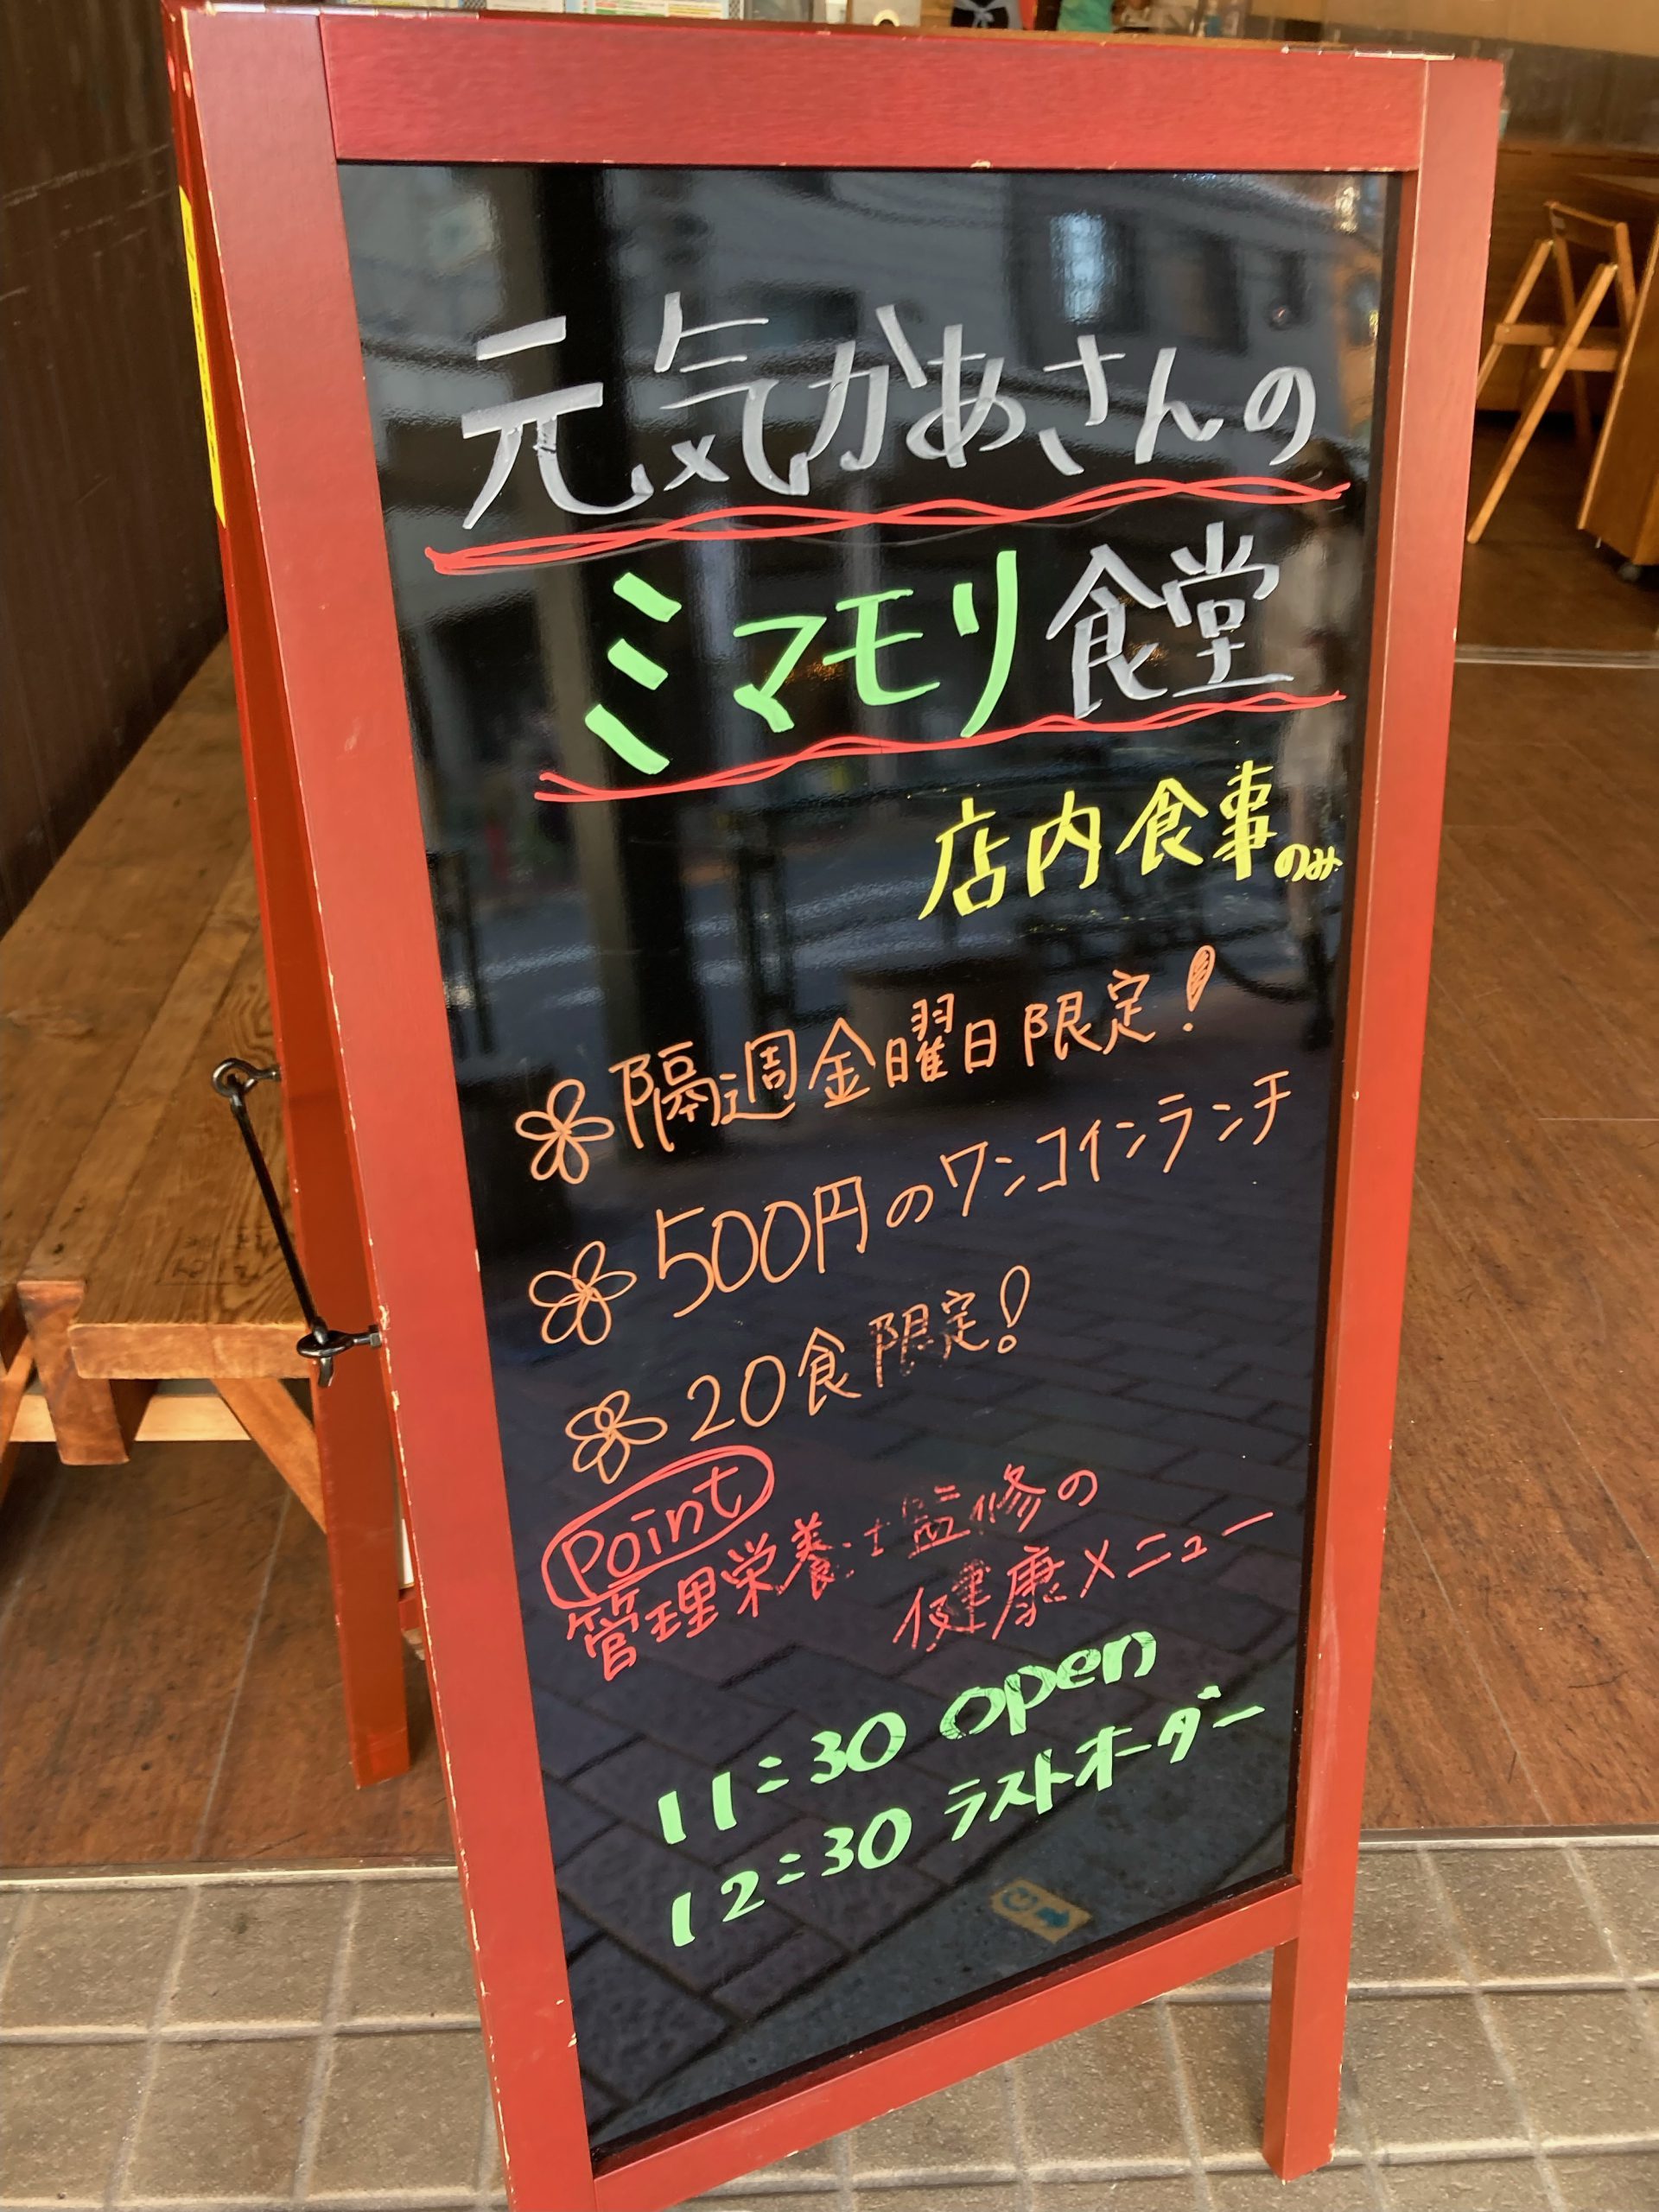 元気かあさんの
ミマモリ食堂
店内食事のみ
隔週金曜日限定!
500円のワンコインランチ
20食限定!
Point
管理栄養士監修の
健康メニュー
11:30 open
12:30 ラストオーダー